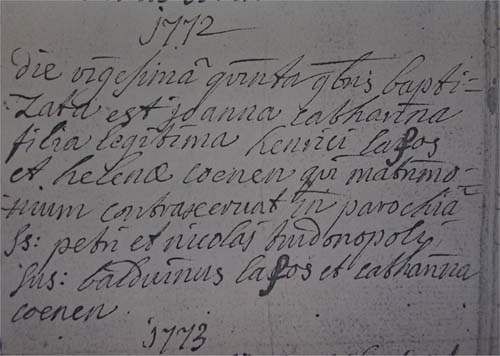 1772
die vigesima quinta 9bris bapti=
zata est joanna catharina
filia legitima henrici lassos
et helenæ coenen qui matrimo=
nium contraxerunt in parochia
Ss: petri et nicolai trudonopoli
sus: balduinus lassos et catharina
coenen
1773